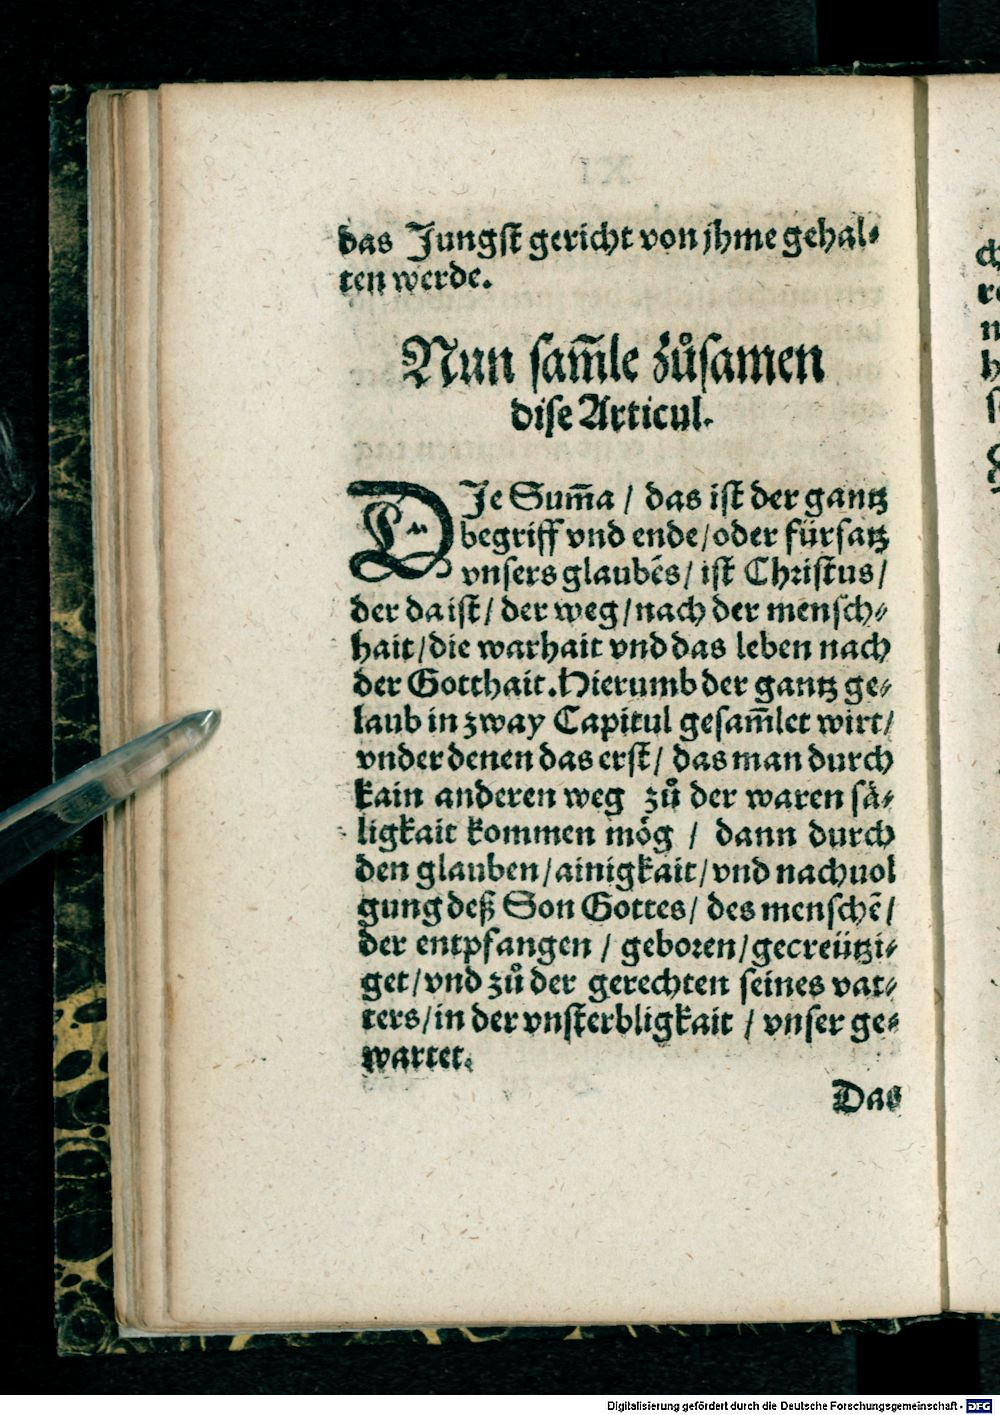 das Jungst gericht von jhme gehal⸗
ten werde.
Nun sam̃le zůsamen
dise Articul.
DJe Sum̃a / das ist der gantz
begriff vnd ende/oder fürsatz
vnsers glaubẽs/ ist Christus/
der da ist/ der weg/nach der mensch⸗
hait/die warhait vnd das leben nach
der Gotthait. Hierumb der gantz ge⸗
laub in zway Capitul gesam̃let wirt/
vnder denen das erst/ das man durch
kain anderen weg zů der waren sä⸗
ligkait kommen mög / dann durch
den glauben/ainigkait/vnd nachuol
gung deß Son Gottes/ des menschẽ/
der entpfangen / geboren/gecreützi⸗
get/vnd zů der gerechten seines vat⸗
ters/in der vnsterbligkait / vnser ge⸗
wartet.
Das
Digitalisierung gefördert durch die Deutsche Forschungsgemeinschaft - DFG